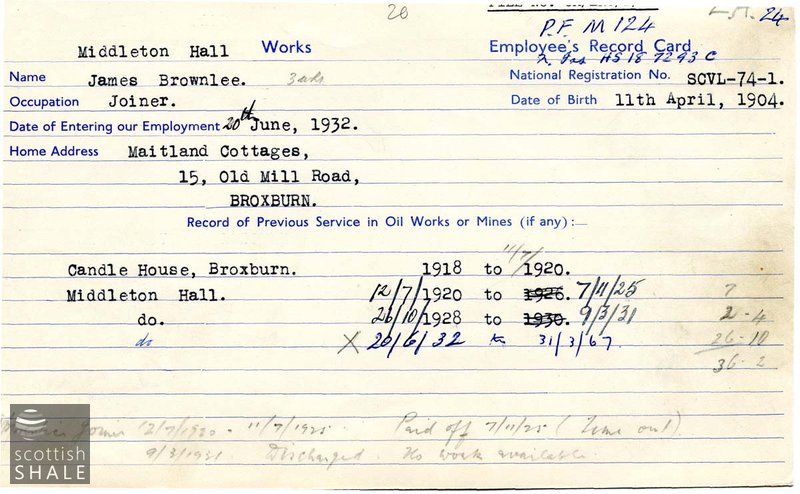 20
24
P.F M 124
Middleton Hall Works
Employee's Record Card
HS 18 7293 C
Name James Brownlee.
National Registration No. SCVL-74-1.
Occupation Joiner.
Date of Birth 11th April, 1904.
Date of Entering our Employment 20th June, 1932.
Home Address Maitland Cottages,
15, Old Mill Road,
BROXBURN.
Record of Previous Service in Oil Works or Mines (if any):—
11/7/
Candle House, Broxburn. 1918 to 1920.
Middleton Hall. 12/7/1920 to 1926. 7/11/25 7
do. 26/10/1928 to 1930. 9/3/31 2 - 4
do X 20/6/32 to 31/3/67. 26 - 10
36 - 2
12/7/1920 - 11/7/1925. Paid off 7/11/25 (Time out)
9/3/1931 Discharged. No work available.
scottish
SHALE